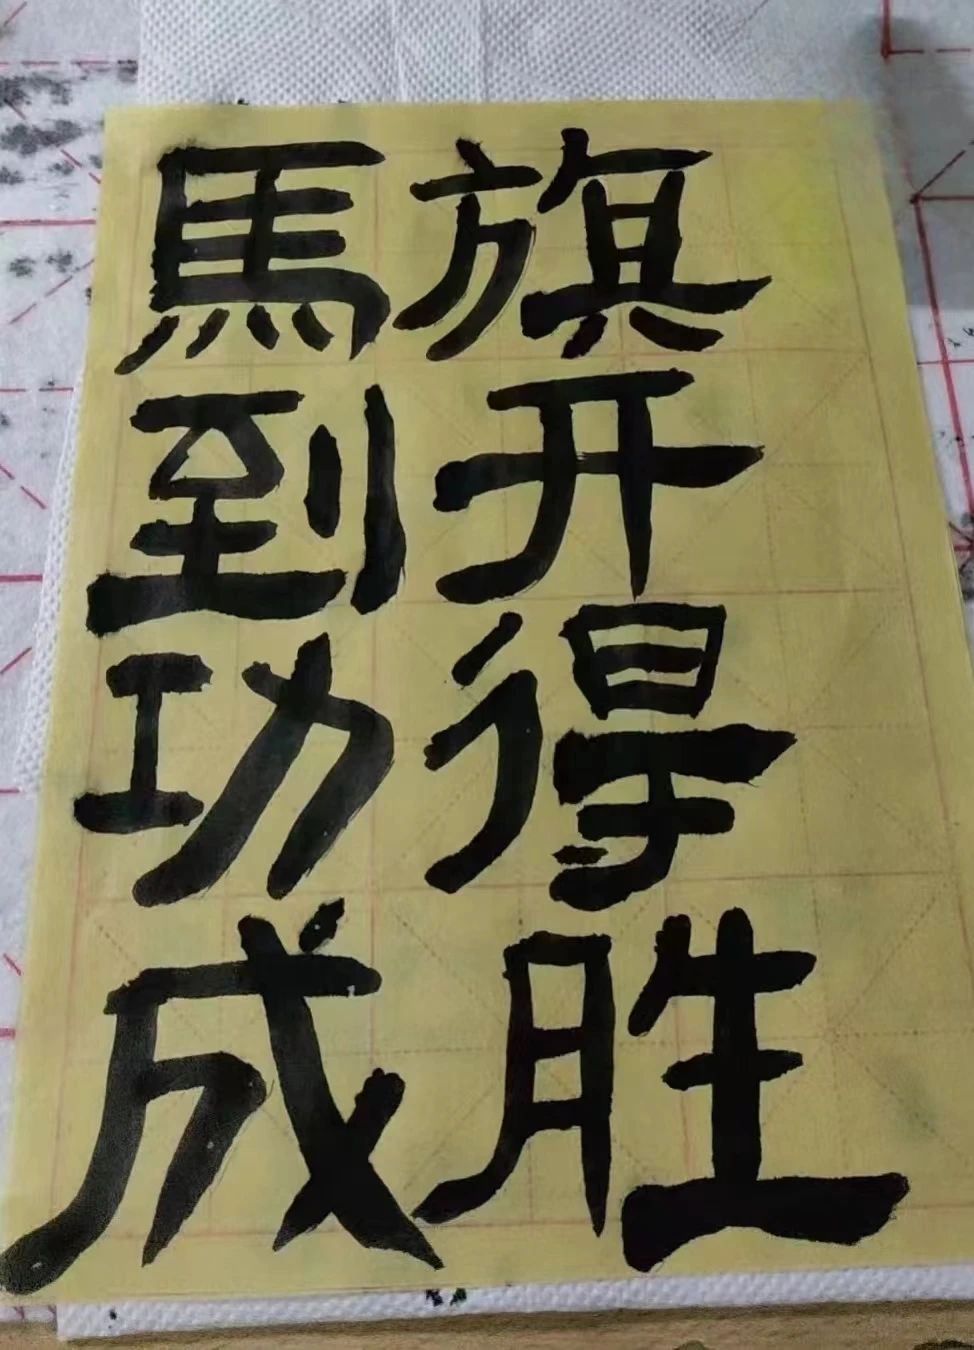 旗开得胜
馬到功成